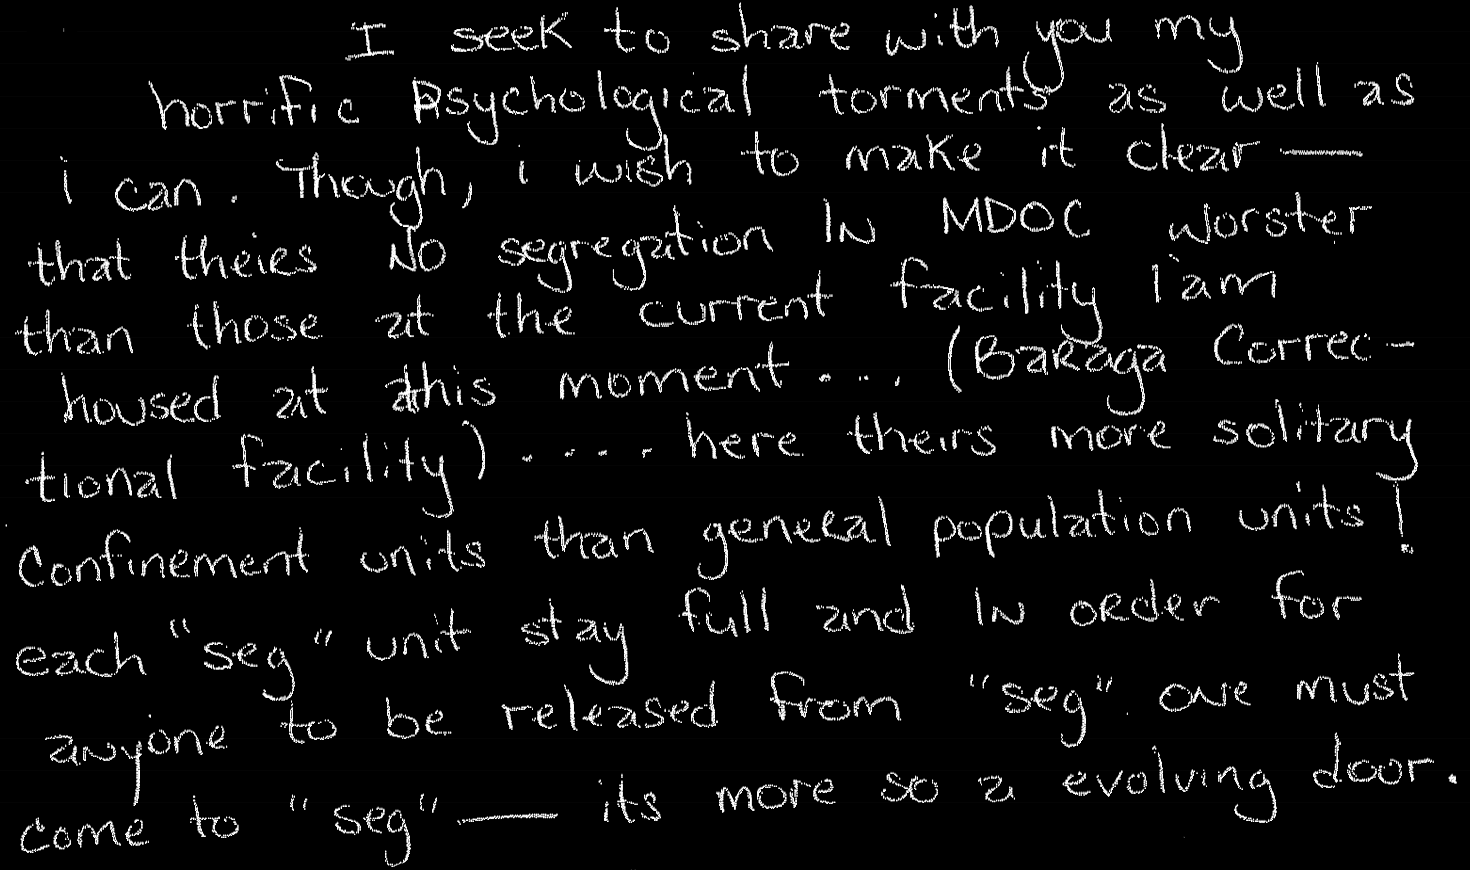 I seek to share with you my
horrific Psychological torments as well as
i can. Though, i wish to make it clear —
that theirs NO segregation IN MDOC worster
than those at the current facility I am
housed at this moment.... (Baraga Correc-
tional facility) ..... here theirs more solitary
Confinement units than general population units!
each "seg" unit stay full and IN order for
anyone to be released from "seg" one must
come to "seg" — its more so a evolving door.